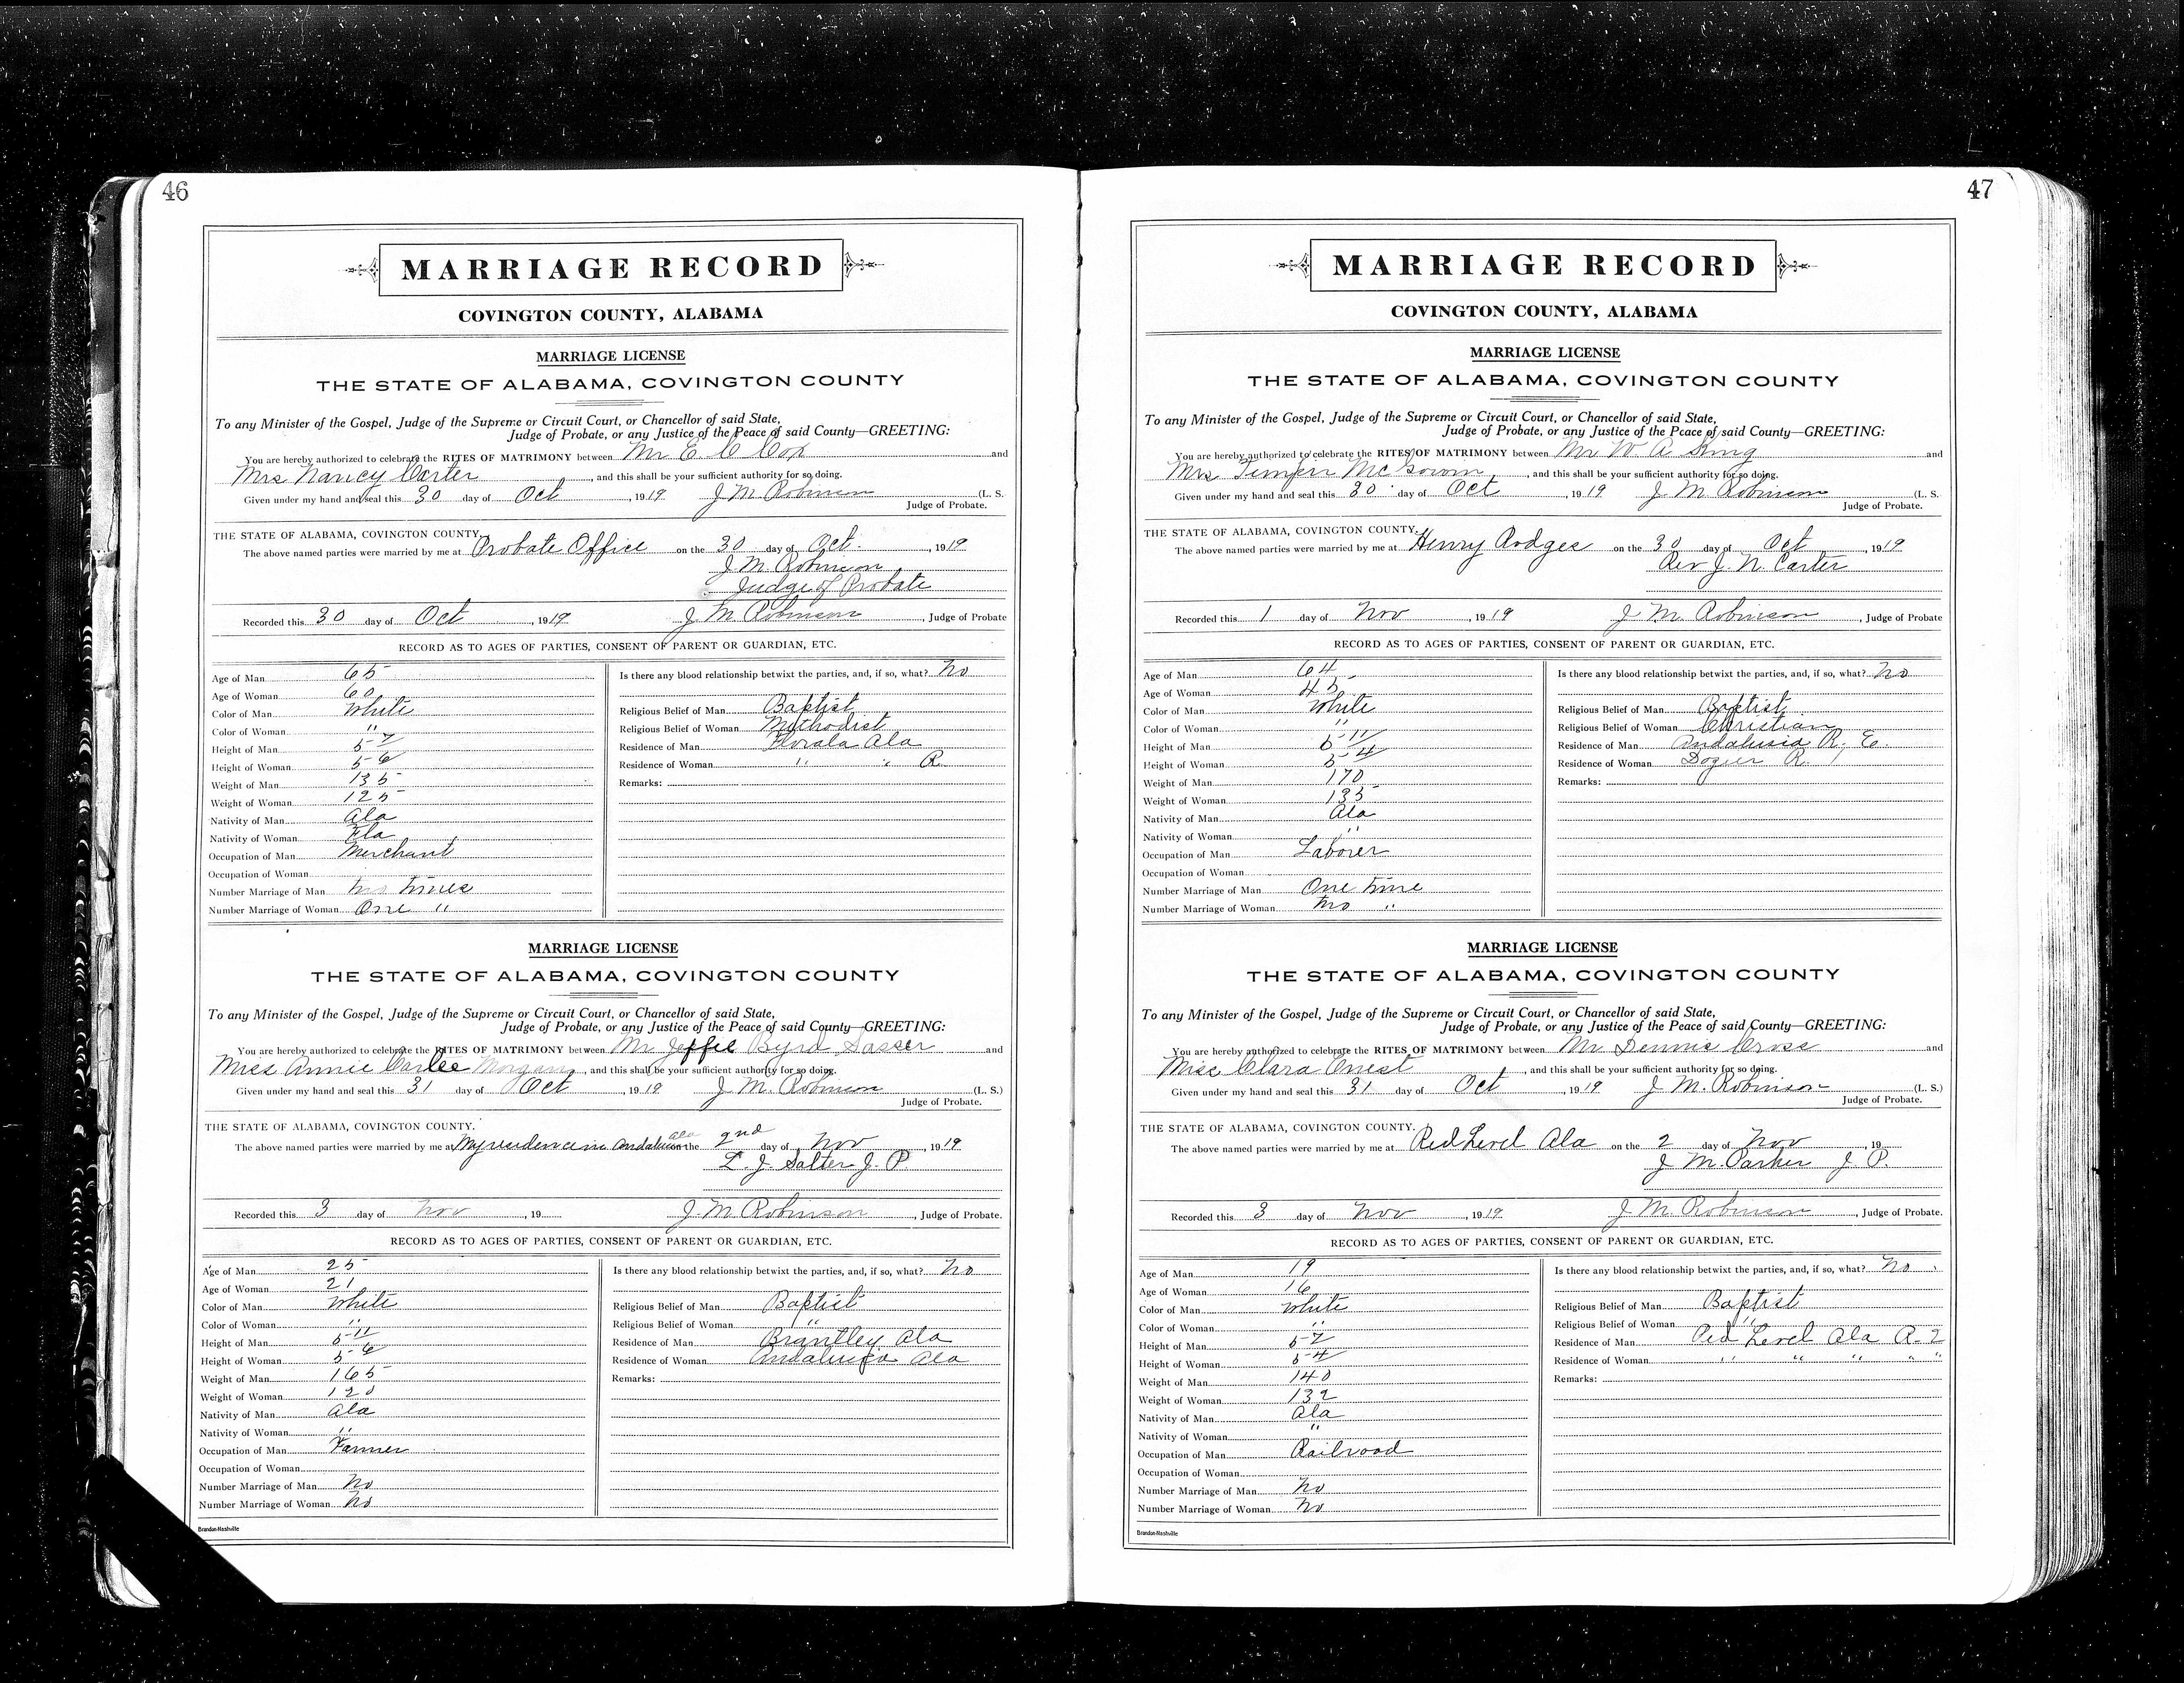 46
MARRIAGE RECORD
COVINGTON COUNTY, ALABAMA
MARRIAGE LICENSE
THE STATE OF ALABAMA, COVINGTON COUNTY
To any Minister of the Gospel, Judge of the Supreme or Circuit Court, or Chancellor of said State,
Judge of Probate, or any Justice of the Peace of said County—GREETING:
You are hereby authorized to celebrate the RITES OF MATRIMONY between Mr E. C Cox and
Mrs Nancy Carter, and this shall be your sufficient authority for so doing.
Given under my hand and seal this 30 day of Oct, 1919 J M Robinson (L. S.
Judge of Probate.
THE STATE OF ALABAMA, COVINGTON COUNTY.
The above named parties were married by me at Probate Office on the 30 day of Oct., 1919
J M. Robinson
Judge of Probate
Recorded this 30 day of Oct, 1919. J M Robinson, Judge of Probate
RECORD AS TO AGES OF PARTIES, CONSENT OF PARENT OR GUARDIAN, ETC.
Age of Man 65
Age of Woman 60
Color of Man White
Color of Woman "
Height of Man 5-7
Height of Woman 5-6
Weight of Man 135
Weight of Woman 125
Nativity of Man Ala
Nativity of Woman Fla
Occupation of Man Merchant
Occupation of Woman
Number Marriage of Man two times
Number Marriage of Woman One "
Is there any blood relationship betwixt the parties, and, if so, what? No
Religious Belief of Man Baptist
Religious Belief of Woman Methodist
Residence of Man Florala Ala
Residence of Woman " " R.
Remarks:
MARRIAGE LICENSE
THE STATE OF ALABAMA, COVINGTON COUNTY
To any Minister of the Gospel, Judge of the Supreme or Circuit Court, or Chancellor of said State,
Judge of Probate, or any Justice of the Peace of said County—GREETING:
You are hereby authorized to celebrate the RITES OF MATRIMONY between Mr Jeffie Byrd Sasser and
Miss Annie Carlee Morgan, and this shall be your sufficient authority for so doing.
Given under my hand and seal this 31 day of Oct, 1919 J M. Robinson (L. S.)
Judge of Probate.
THE STATE OF ALABAMA, COVINGTON COUNTY.
The above named parties were married by me at My residence in Andalusia Ala on the 2nd day of Nov, 1919
L. J. Salter J. P
Recorded this 3 day of Nov, 19 J. M Robinson, Judge of Probate.
RECORD AS TO AGES OF PARTIES, CONSENT OF PARENT OR GUARDIAN, ETC.
Age of Man 25
Age of Woman 21
Color of Man White
Color of Woman "
Height of Man 5-11
Height of Woman 5-6
Weight of Man 165
Weight of Woman 120
Nativity of Man Ala
Nativity of Woman "
Occupation of Man Farmer
Occupation of Woman
Number Marriage of Man No
Number Marriage of Woman No
Is there any blood relationship betwixt the parties, and, if so, what? No
Religious Belief of Man Baptist
Religious Belief of Woman "
Residence of Man Brantley Ala
Residence of Woman Andalusia Ala
Remarks:
Brandon-Nashville
47
MARRIAGE RECORD
COVINGTON COUNTY, ALABAMA
MARRIAGE LICENSE
THE STATE OF ALABAMA, COVINGTON COUNTY
To any Minister of the Gospel, Judge of the Supreme or Circuit Court, or Chancellor of said State,
Judge of Probate, or any Justice of the Peace of said County—GREETING:
You are hereby authorized to celebrate the RITES OF MATRIMONY between Mr W A and
Mrs, and this shall be your sufficient authority for so doing.
Given under my hand and seal this 30 day of Oct, 1919 J M Robinson (L. S.
Judge of Probate.
THE STATE OF ALABAMA, COVINGTON COUNTY.
The above named parties were married by me at Henry on the 30 day of Oct, 1919
Rev J. N. Carter
Recorded this 1 day of Nov, 1919 J M. Robinson, Judge of Probate
RECORD AS TO AGES OF PARTIES, CONSENT OF PARENT OR GUARDIAN, ETC.
Age of Man 64
Age of Woman 45
Color of Man White
Color of Woman "
Height of Man 5-11
Height of Woman 5-4
Weight of Man 170
Weight of Woman 135
Nativity of Man Ala
Nativity of Woman "
Occupation of Man Laborer
Occupation of Woman
Number Marriage of Man One time
Number Marriage of Woman two "
Is there any blood relationship betwixt the parties, and, if so, what? No
Religious Belief of Man Baptist
Religious Belief of Woman Christian
Residence of Man Andalusia R, E.
Residence of Woman Dozier R.
Remarks:
MARRIAGE LICENSE
THE STATE OF ALABAMA, COVINGTON COUNTY
To any Minister of the Gospel, Judge of the Supreme or Circuit Court, or Chancellor of said State,
Judge of Probate, or any Justice of the Peace of said County—GREETING:
You are hereby authorized to celebrate the RITES OF MATRIMONY between Mr Dennis Cross and
Miss Clara Onest, and this shall be your sufficient authority for so doing.
Given under my hand and seal this 31 day of Oct, 1919 J M. Robinson (L. S.)
Judge of Probate.
THE STATE OF ALABAMA, COVINGTON COUNTY.
The above named parties were married by me at Red Level Ala on the 2 day of Nov, 19
J M. Parker J. P.
Recorded this 3 day of Nov, 1919 J M Robinson, Judge of Probate.
RECORD AS TO AGES OF PARTIES, CONSENT OF PARENT OR GUARDIAN, ETC.
Age of Man 19
Age of Woman 16
Color of Man White
Color of Woman "
Height of Man 5-7
Height of Woman 5-4
Weight of Man 140
Weight of Woman 132
Nativity of Man Ala
Nativity of Woman "
Occupation of Man Railroad
Occupation of Woman
Number Marriage of Man No
Number Marriage of Woman No
Is there any blood relationship betwixt the parties, and, if so, what? No
Religious Belief of Man Baptist
Religious Belief of Woman "
Residence of Man Red Level Ala R-2
Residence of Woman " " " " "
Remarks:
Brandon-Nashville